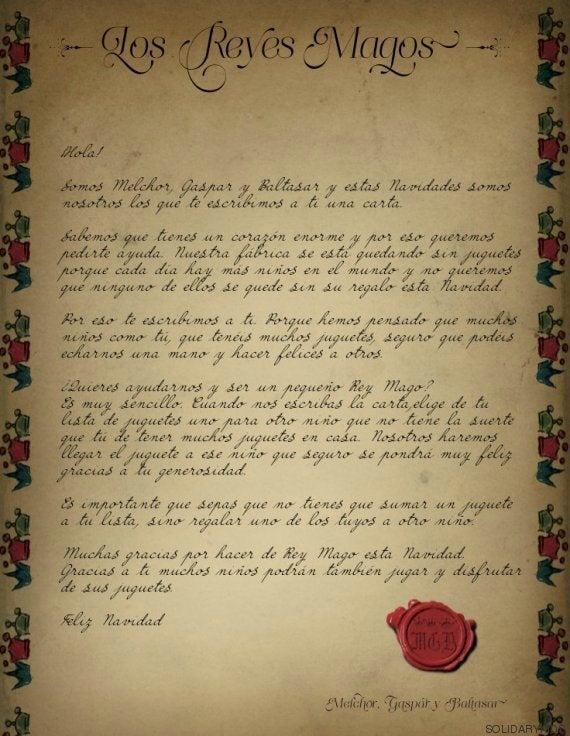 Los Reyes Magos
¡Hola!
Somos Melchor, Gaspar y Baltasar y estas Navidades somos
nosotros los que te escribimos a ti una carta.
Sabemos que tienes un corazón enorme y por eso queremos
pedirte ayuda. Nuestra fábrica se está quedando sin juguetes
porque cada día hay más niños en el mundo y no queremos
que ninguno de ellos se quede sin su regalo esta Navidad.
Por eso te escribimos a ti. Porque hemos pensado que muchos
niños como tú, que tenéis muchos juguetes, seguro que podéis
echarnos una mano y hacer felices a otros.
¿Quieres ayudarnos y ser un pequeño Rey Mago?
Es muy sencillo. Cuando nos escribas la carta,elige de tu
lista de juguetes uno para otro niño que no tiene la suerte
que tú de tener muchos juguetes en casa. Nosotros haremos
llegar el juguete a ese niño que seguro se pondrá muy feliz
gracias a tu generosidad.
Es importante que sepas que no tienes que sumar un juguete
a tu lista, sino regalar uno de los tuyos a otro niño.
Muchas gracias por hacer de Rey Mago esta Navidad.
Gracias a ti muchos niños podrán también jugar y disfrutar
de sus juguetes.
Feliz Navidad
MGB
Melchor, Gaspar y Baltasar